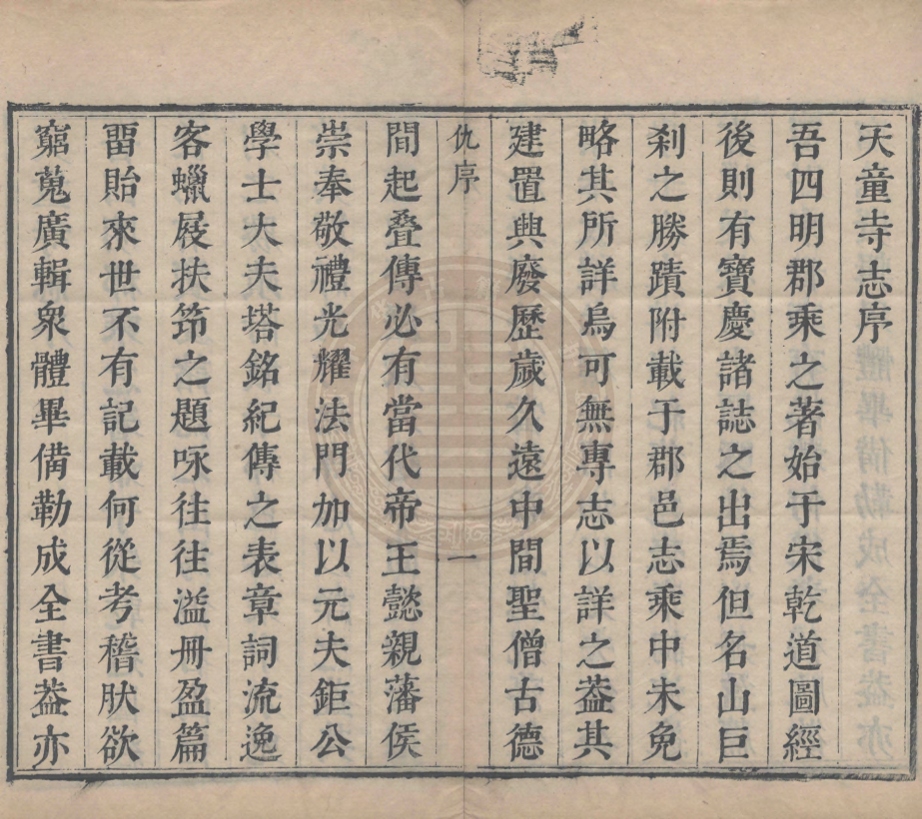 天童寺志序
吾四明郡乘之著始于宋乾道圖經
後則有寶慶諸誌之出焉但名山巨
刹之勝蹟附載于郡邑志乘中未免
略其所詳烏可無專志以詳之葢其
建置興廢歷歲久遠中間聖僧古德
仇序
一
間起疊傳必有當代帝王懿親藩侯
崇奉敬禮光耀法門加以元夫鉅公
學士大夫塔銘紀傳之表章詞流逸
客蠟屐扶筇之題咏往往溢冊盈篇
畱貽來世不有記載何從考稽肰欲
窮蒐廣輯衆體畢備勒成全書葢亦